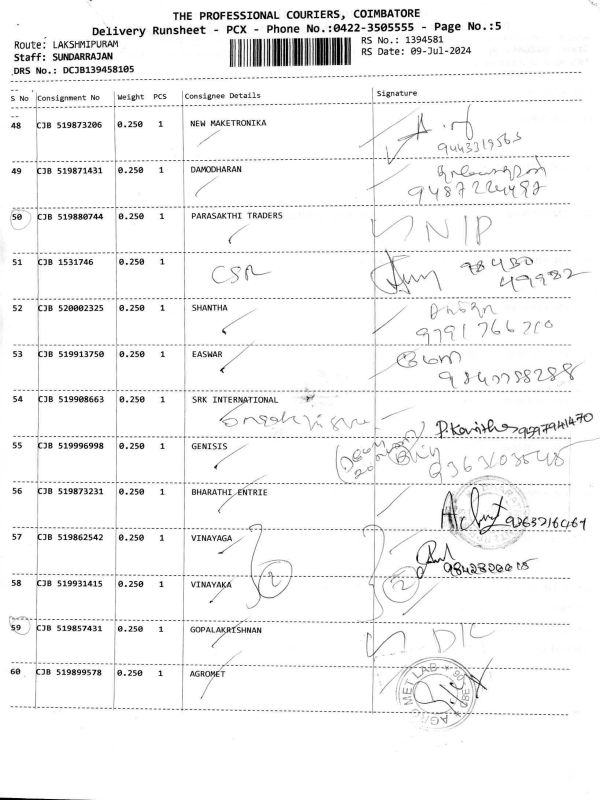 THE PROFESSIONAL COURIERS, COIMBATORE
Delivery Runsheet - PCX - Phone No.:0422-3505555 - Page No.:5
Route: LAKSHMIPURAM RS No.: 1394581
Staff: SUNDARRAJAN RS Date: 09-Jul-2024
DRS No.: DCJB139458105
S No Consignment No Weight PCS Consignee Details Signature
48 CJB 519873206 0.250 1 NEW MAKETRONIKA
9443319563
49 CJB 519871431 0.250 1 DAMODHARAN
9487224492
50 CJB 519880744 0.250 1 PARASAKTHI TRADERS N/P
51 CJB 1531746 0.250 1 CSR 98430
49982
52 CJB 520002325 0.250 1 SHANTHA
9791766210
53 CJB 519913750 0.250 1 EASWAR
9843788288
54 CJB 519908663 0.250 1 SRK INTERNATIONAL
P. Kavitha 9597941470
55 CJB 519996998 0.250 1 GENISIS
56 CJB 519873231 0.250 1 BHARATHI ENTRIE
57 CJB 519862542 0.250 1 VINAYAGA
2 2
58 CJB 519931415 0.250 1 VINAYAKA
59 CJB 519857431 0.250 1 GOPALAKRISHNAN D/C
60 CJB 519899578 0.250 1 AGROMET
AGROMET LAB